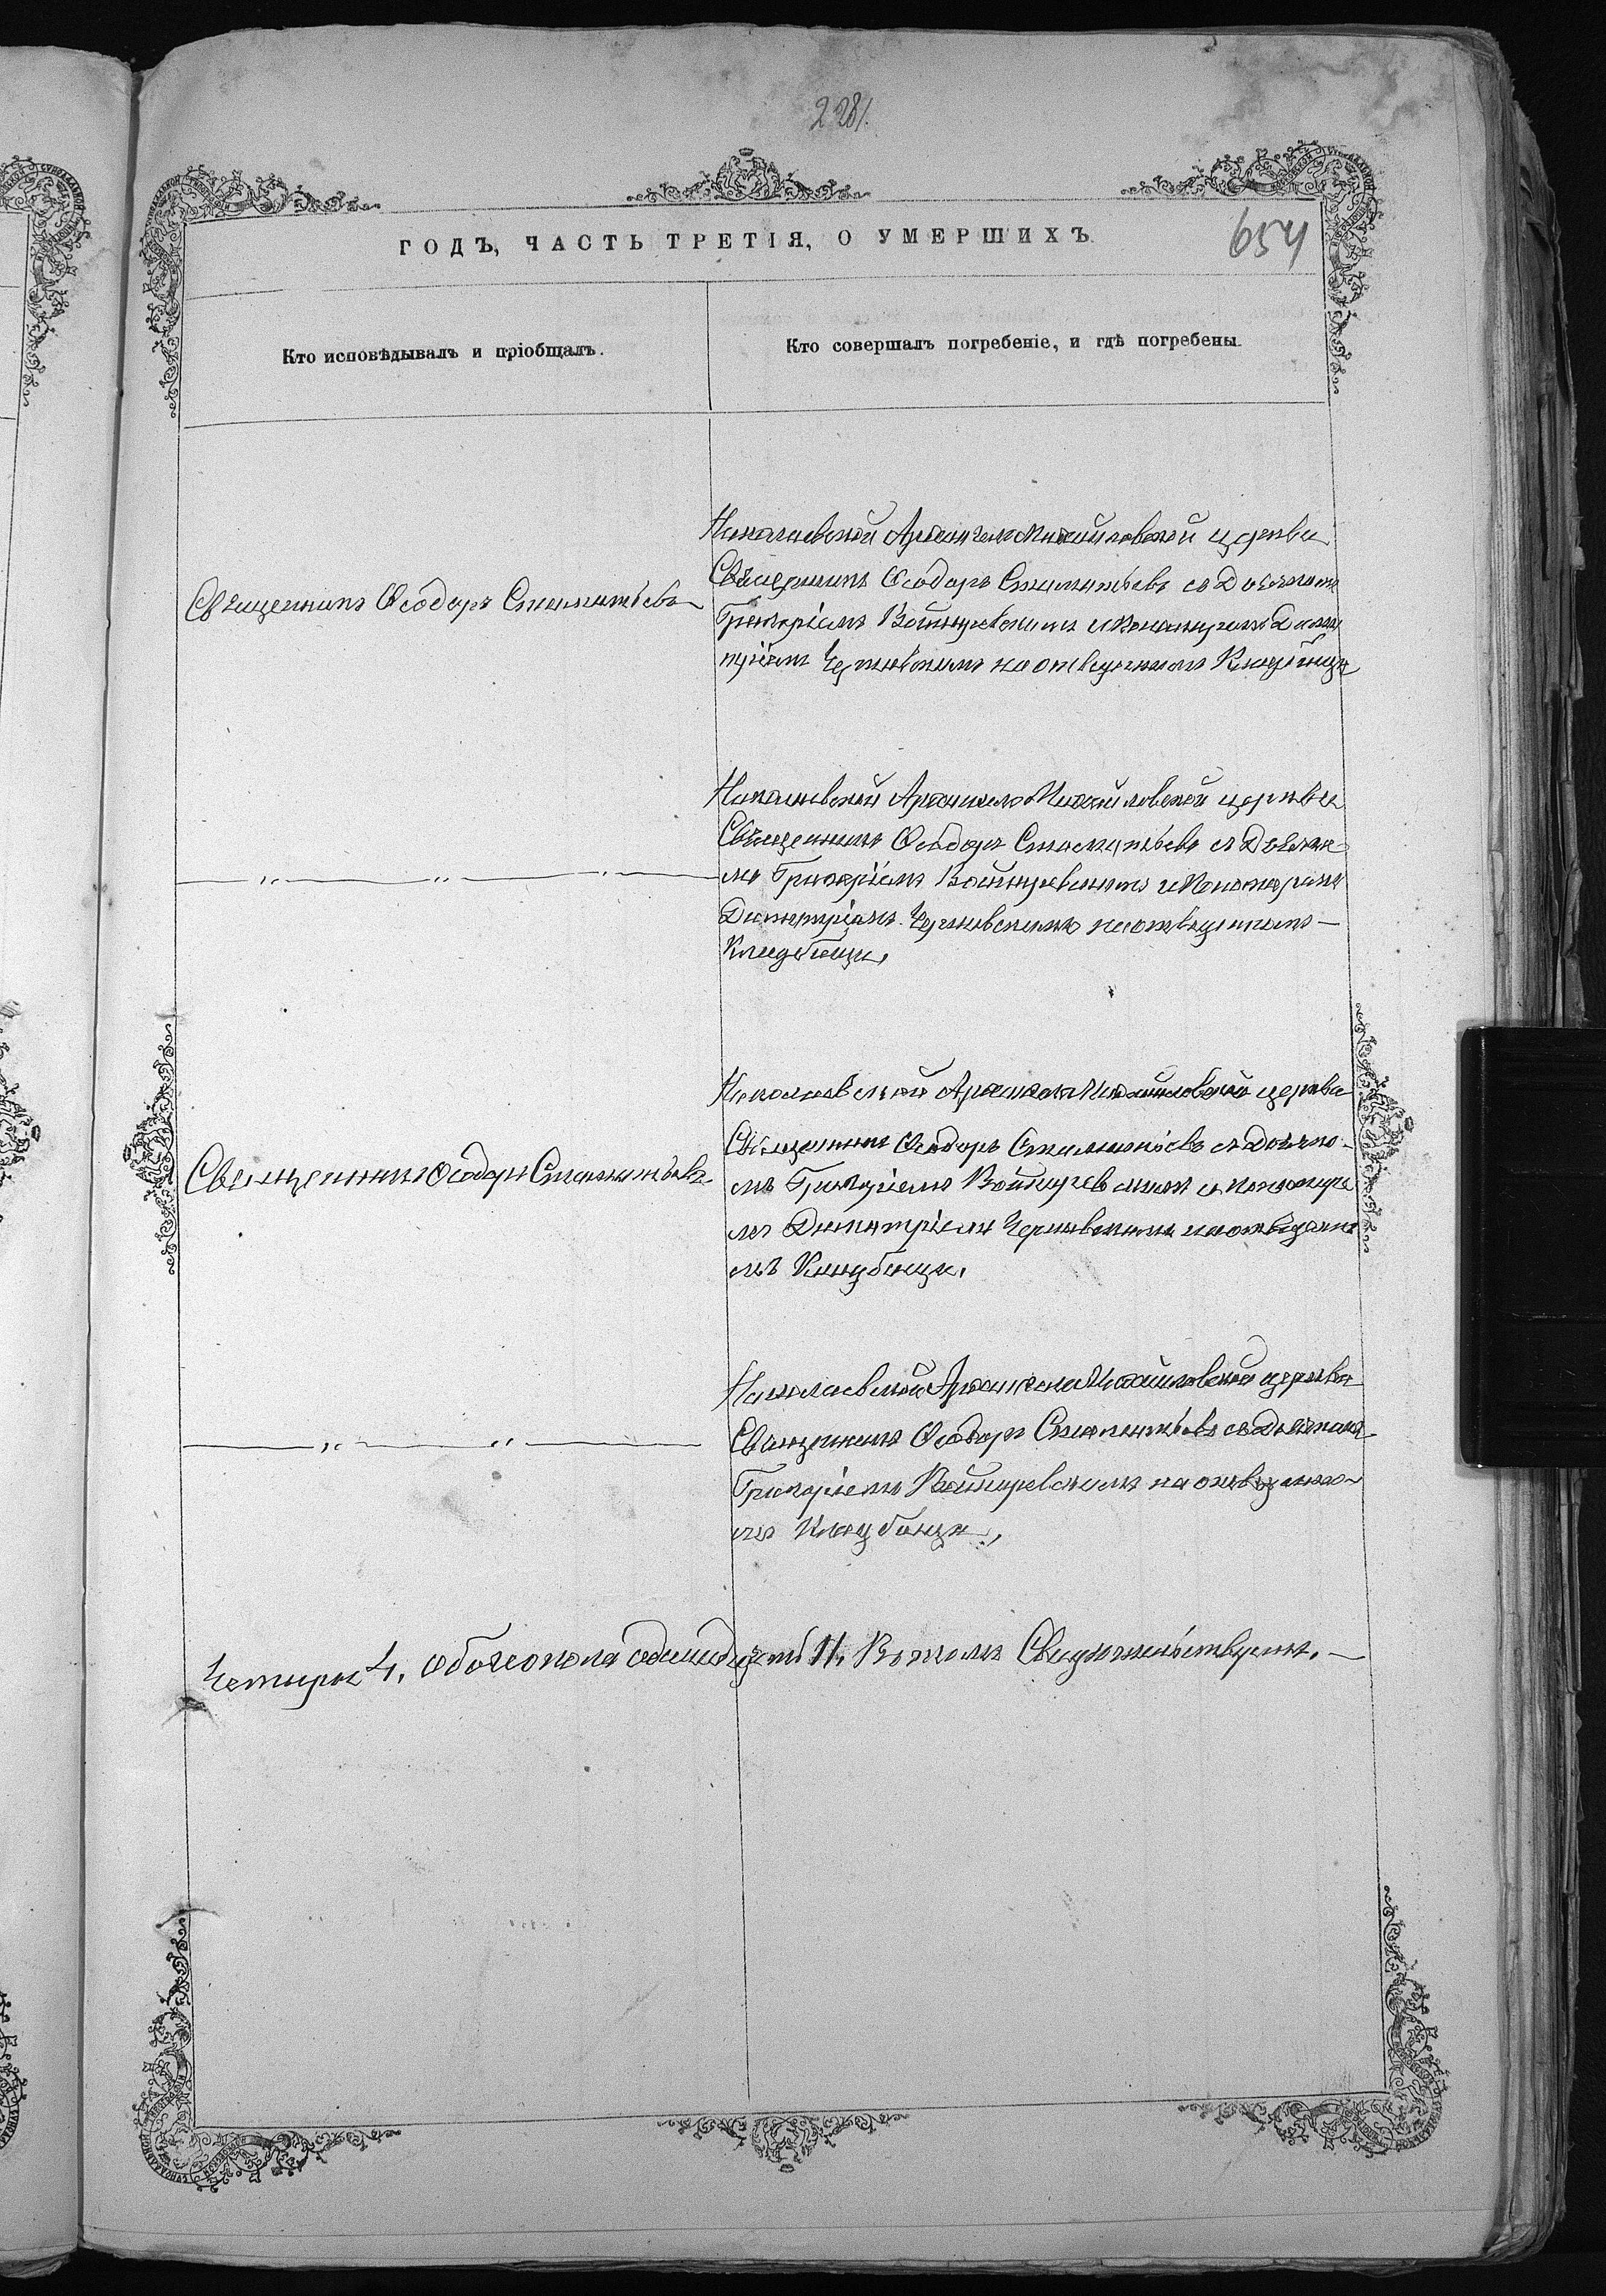 228
654
ГОДЪ, ЧАСТЬ ТРЕТІЯ, О УМЕРШИХЪ.
Кто исповѣдывалъ и пріобщалъ.
Кто совершалъ погребеніе, и гдѣ погребены.
Священникъ Ѳеодоръ Стаматьевъ
Николаевской Архангело Михайловской церкви
Священникъ Ѳеодоръ Стаматьевъ съ Дьячкомъ
Григоріемъ и Пономаремъ Дими
тріемъ Чернявскимъ на отведенномъ Кладбищи
Николаевской Архангело Михайловской церкви
Священникъ Ѳеодоръ Стаматьевъ съ Дьячко
мъ Григоріемъ и Пономаремъ
Димитріемъ Чернявскимъ на отведенномъ
Кладбищи,
Священникъ Ѳеодоръ Стаматьевъ
Николаевской Архангело Михайловской церкви
Священникъ Ѳеодоръ Стаматьевъ съ Дьячко-
мъ Григоріемъ и пономаре
мъ Димитріемъ Чернявскимъ на отведенно
мъ Кладбищи,
Николаевской Архангело Михайловской церкви
Священникъ Ѳеодоръ Стаматьевъ съ Дьячкомъ
Григоріемъ на отведенно-
мъ Кладбищи,
Четыри 4, обоего пола одинадцать 11, В томъ Свидетельствуемъ.